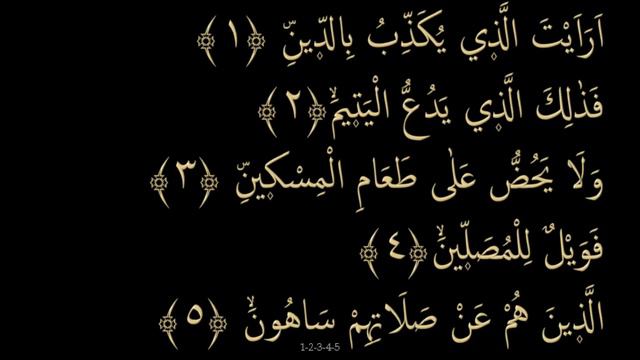 اَرَاَيْتَ الَّذٖي يُكَذِّبُ بِالدّٖينِؕ ﴿١﴾
فَذٰلِكَ الَّذٖي يَدُعُّ الْيَتٖيمَۙ ﴿٢﴾
وَلَا يَحُضُّ عَلٰى طَعَامِ الْمِسْكٖينِؕ ﴿٣﴾
فَوَيْلٌ لِلْمُصَلّٖينَۙ ﴿٤﴾
الَّذٖينَ هُمْ عَنْ صَلَاتِهِمْ سَاهُونَۙ ﴿٥﴾
1-2-3-4-5